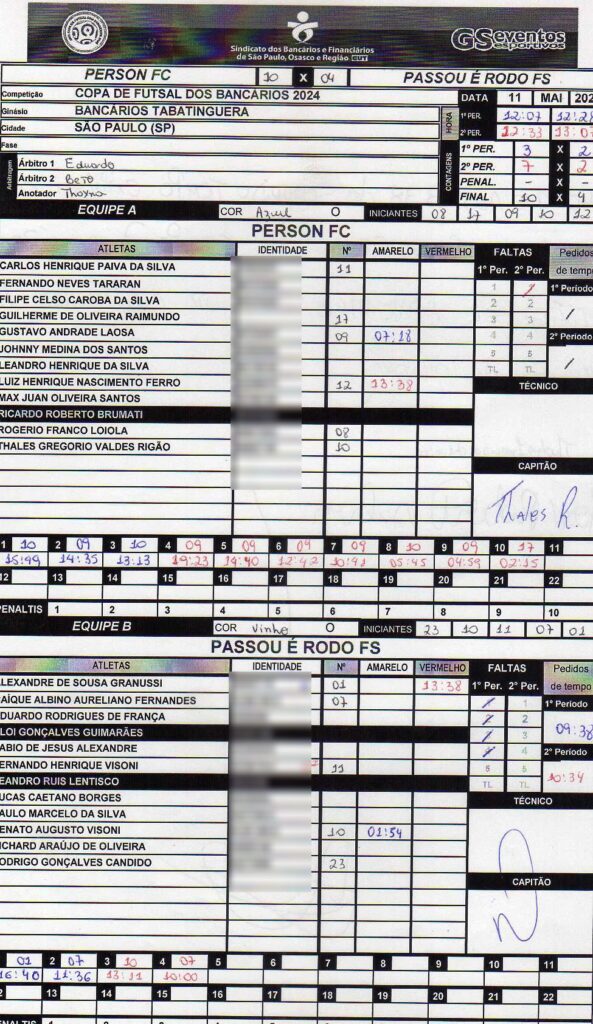 Sindicato dos Bancários e Financiários
de São Paulo, Osasco e Região CUT
GSeventos
esportivos
PERSON FC 10 X 04 PASSOU É RODO FS
Competição COPA DE FUTSAL DOS BANCÁRIOS 2024
Ginásio BANCÁRIOS TABATINGUERA
Cidade SÃO PAULO (SP)
Fase
DATA 11 MAI 202
HORA
1º PER. 12:07 12:28
2º PER. 12:33 13:07
CONTAGENS
1º PER. 3 X 2
2º PER. 7 X 2
PENAL. - X -
FINAL 10 X 4
Arbitragem
Árbitro 1 Eduardo
Árbitro 2 Beto
Anotador
EQUIPE A COR Azul O INICIANTES 08 17 09 10 12
PERSON FC
ATLETAS IDENTIDADE Nº AMARELO VERMELHO FALTAS Pedidos de tempo
1º Per. 2º Per.
CARLOS HENRIQUE PAIVA DA SILVA 11
FERNANDO NEVES TARARAN
FILIPE CELSO CAROBA DA SILVA
GUILHERME DE OLIVEIRA RAIMUNDO 17
GUSTAVO ANDRADE LAOSA 09 07:18
JOHNNY MEDINA DOS SANTOS
LEANDRO HENRIQUE DA SILVA
LUIZ HENRIQUE NASCIMENTO FERRO 12 13:38
MAX JUAN OLIVEIRA SANTOS
RICARDO ROBERTO BRUMATI
ROGERIO FRANCO LOIOLA 08
THALES GREGORIO VALDES RIGÃO 10
1 1
2 2
3 3
4 4
5 5
TL TL
1º Período
/
2º Período
/
TÉCNICO
CAPITÃO
Thales R.
1 10 2 09 3 10 4 09 5 09 6 09 7 09 8 10 9 09 10 17 11
14:35 13:13 19:23 14:40 12:42 10:41 05:45 04:59 02:15
12 13 14 15 16 17 18 19 20 21 22
PENALTIS 1 2 3 4 5 6 7 8 9 10
EQUIPE B COR Vinho O INICIANTES 23 10 11 07 01
PASSOU É RODO FS
ATLETAS IDENTIDADE Nº AMARELO VERMELHO FALTAS Pedidos de tempo
1º Per. 2º Per.
ALEXANDRE DE SOUSA GRANUSSI 01 13:38
CAÍQUE ALBINO AURELIANO FERNANDES 07
EDUARDO RODRIGUES DE FRANÇA
ELOI GONÇALVES GUIMARÃES
FABIO DE JESUS ALEXANDRE
FERNANDO HENRIQUE VISONI 11
LEANDRO RUIS LENTISCO
LUCAS CAETANO BORGES
PAULO MARCELO DA SILVA
RENATO AUGUSTO VISONI 10 01:54
RICHARD ARAÚJO DE OLIVEIRA
RODRIGO GONÇALVES CANDIDO 23
1 1
2 2
3 3
4 4
5 5
TL TL
1º Período
09:38
2º Período
10:34
TÉCNICO
CAPITÃO
1 01 2 07 3 10 4 07 5 6 7 8 9 10 11
16:40 11:36 13:11 10:00
12 13 14 15 16 17 18 19 20 21 22
PENALTIS 1 2 3 4 5 6 7 8 9 10